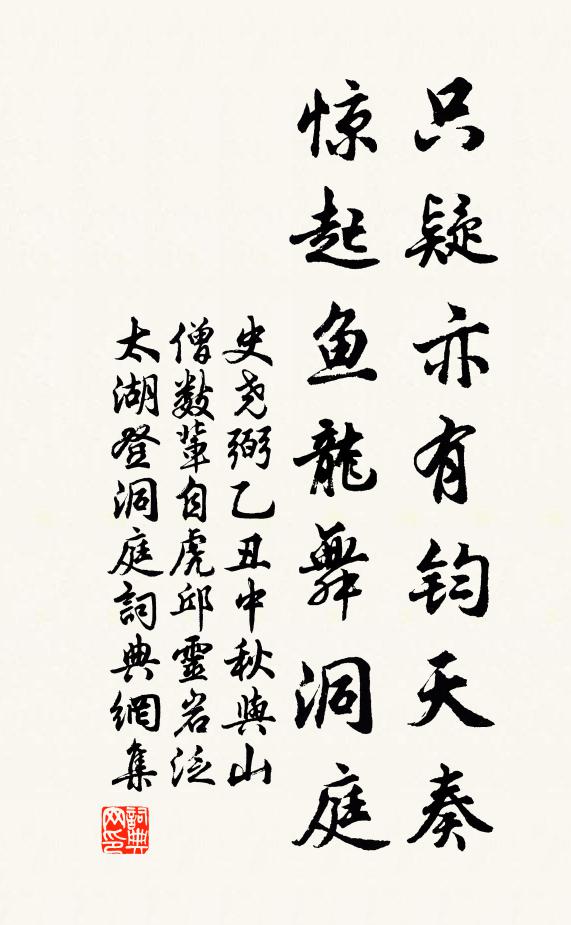 只疑亦有钧天奏
惊起鱼龍舞洞庭
史尧弼乙丑中秋與山
僧数輩自虎邱靈岩泛
太湖登洞庭詞典網集
詞典網印